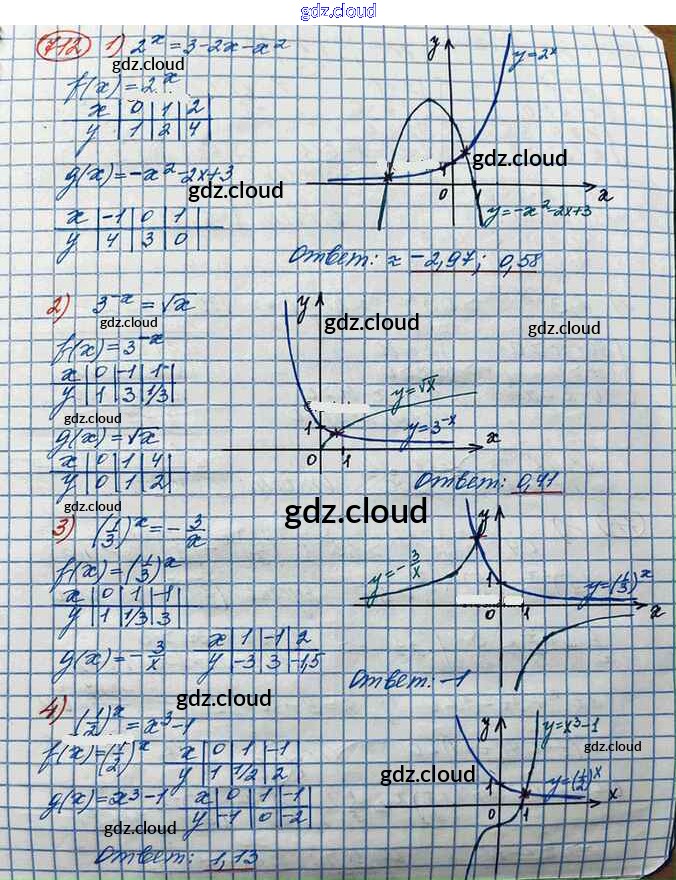 gdz.cloud
gdz.cloud
712 1) 2^x = 3-2x-x^2
gdz.cloud
f(x)=2^x
x | 0 | 1 | 2
y | 1 | 2 | 4
g(x)=-x^2-2x+3
gdz.cloud
x | -1 | 0 | 1
y | 4 | 3 | 0
y
y=2^x
gdz.cloud
1
0 1
x
y=-x^2-2x+3
Ответ: ≈ -2,97; 0,58
2) 3^-x = √x
gdz.cloud
f(x)=3^-x
x | 0 | -1 | 1
y | 1 | 3 | 1/3
gdz.cloud
g(x)=√x
x | 0 | 1 | 4
y | 0 | 1 | 2
gdz.cloud
y
gdz.cloud
gdz.cloud
y=√x
1
y=3^-x
x
0 1
Ответ: 0,41
gdz.cloud
3) (1/3)^x = -3/x
f(x)=(1/3)^x
x | 0 | 1 | -1
y | 1 | 1/3 | 3
g(x)=-3/x
x | 1 | -1 | 2
y | -3 | 3 | -1,5
y
y=-3/x
1
y=(1/3)^x
0 1
x
Ответ: -1
4) (1/2)^x = x^3-1
gdz.cloud
f(x)=(1/2)^x
x | 0 | 1 | -1
y | 1 | 1/2 | 2
g(x)=x^3-1
x | 0 | 1 | -1
y | -1 | 0 | -2
gdz.cloud
y
y=x^3-1
gdz.cloud
gdz.cloud
1
y=(1/2)^x
x
0 1
Ответ: 1,13